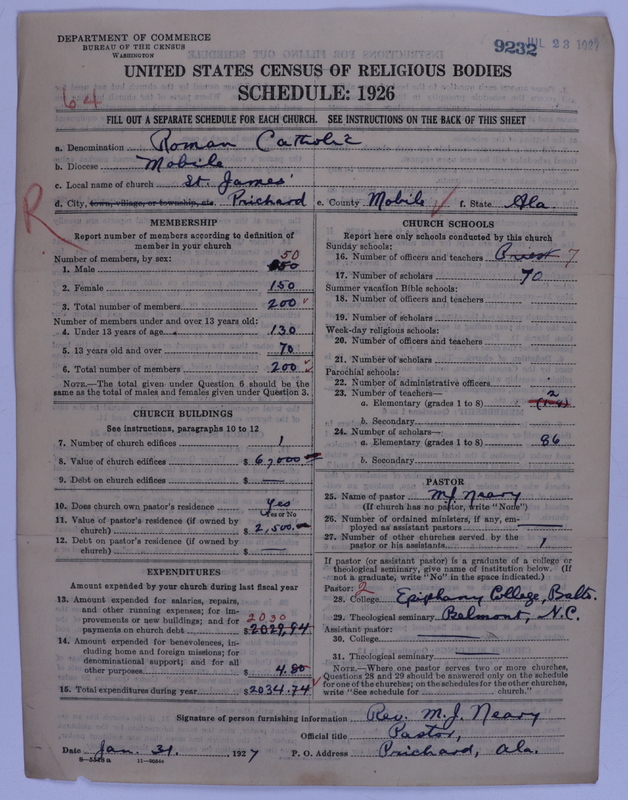 DEPARTMENT OF COMMERCE
BUREAU OF THE CENSUS
WASHINGTON
9232 JUL 23 1927
UNITED STATES CENSUS OF RELIGIOUS BODIES
SCHEDULE: 1926
64
FILL OUT A SEPARATE SCHEDULE FOR EACH CHURCH. SEE INSTRUCTIONS ON THE BACK OF THIS SHEET
a. Denomination Roman Catholic
b. Diocese Mobile
c. Local name of church St. James'
d. City, town, village, or township, etc. Prichard e. County Mobile f. State Ala.
R
MEMBERSHIP
Report number of members according to definition of
member in your church
Number of members, by sex:
1. Male 50
2. Female 150
3. Total number of members 200
Number of members under and over 13 years old:
4. Under 13 years of age 130
5. 13 years old and over 70
6. Total number of members 200
NOTE.—The total given under Question 6 should be
same as the total of males and females given under Question 3.
CHURCH BUILDINGS
See instructions, paragraphs 10 to 12
7. Number of church edifices 1
8. Value of church edifices $ 6,000
9. Debt on church edifices $ —
10. Does church own pastor's residence Yes
Yes or No
11. Value of pastor's residence (if owned by
church) $ 2,500.
12. Debt on pastor's residence (if owned by
church) $ —
EXPENDITURES
Amount expended by your church during last fiscal year
13. Amount expended for salaries, repairs,
and other running expenses; for im-
provements or new buildings; and for 2030
payments on church debt $ 2029,94
14. Amount expended for benevolences, in-
cluding home and foreign missions; for
denominational support; and for all
other purposes $ 4.80
15. Total expenditures during year $ 2034.74
CHURCH SCHOOLS
Report here only schools conducted by this church
Sunday schools:
16. Number of officers and teachers Priest 7
17. Number of scholars 70
Summer vacation Bible schools:
18. Number of officers and teachers
19. Number of scholars
Week-day religious schools:
20. Number of officers and teachers
21. Number of scholars
Parochial schools:
22. Number of administrative officers
23. Number of teachers—
a. Elementary (grades 1 to 8) 2 (1-8)
b. Secondary
24. Number of scholars—
a. Elementary (grades 1 to 8) 86
b. Secondary
PASTOR
25. Name of pastor M.J. Neary
(If church has no pastor, write "None")
26. Number of ordained ministers, if any, em-
ployed as assistant pastors —
27. Number of other churches served by the
pastor or his assistants 1
If pastor (or assistant pastor) is a graduate of a college or
theological seminary, give name of institution below. (If
not a graduate, write "No" in the space indicated.)
Pastor: 2
28. College Epiphany College, Balto.
29. Theological seminary Belmont, N.C.
Assistant pastor:
30. College —
31. Theological seminary —
NOTE.—Where one pastor serves two or more churches,
Questions 28 and 29 should be answered only on the schedule
for one of the churches; on the schedules for the other churches,
write "See schedule for church."
Signature of person furnishing information Rev. M.J. Neary
Official title Pastor,
Date Jan. 31. 1927 P. O. Address Prichard, Ala.
8—5518a 11—90844